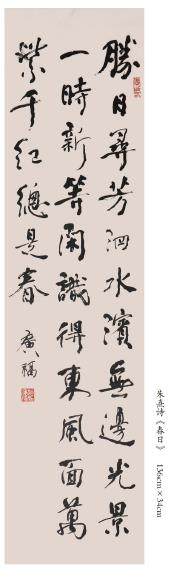 勝日尋芳泗水濱無邊光景
一時新等閑識得東風面萬
紫千紅總是春 廣福
朱熹诗《春日》 136cm×34cm